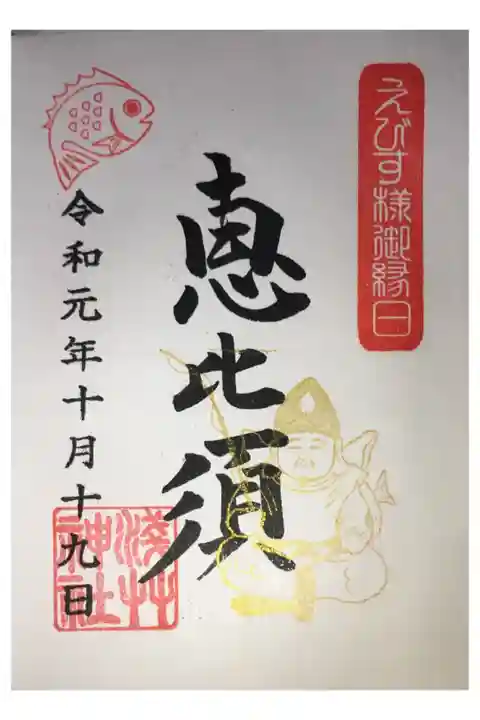 えびす様御縁日
恵比須
令和元年十月十九日
浅草神社